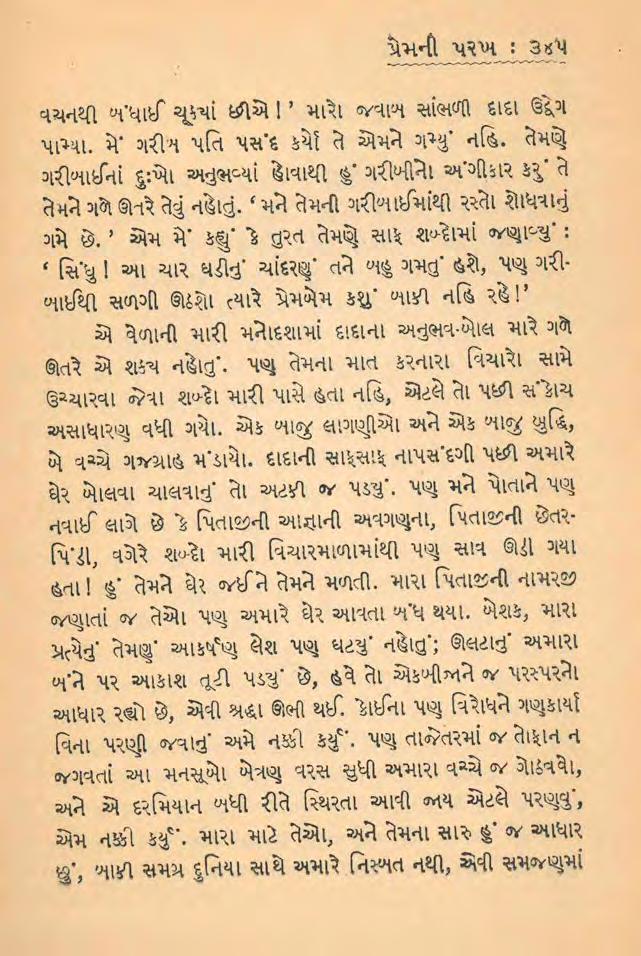 પ્રેમની પરખ : ૩૪૫
વચનથી બંધાઈ ચૂક્યાં છીએ !’ મારો જવાબ સાંભળી દાદા ઉદ્વેગ
પામ્યા. મેં ગરીબ પતિ પસંદ કર્યો તે એમને ગમ્યું નહિ. તેમણે
ગરીબાઈનાં દુઃખો અનુભવ્યાં હોવાથી હું ગરીબીનો અંગીકાર કરું તે
તેમને ગળે ઊતરે તેવું નહોતું. ‘મને તેમની ગરીબાઈમાંથી રસ્તો શોધવાનું
ગમે છે.’ એમ મેં કહ્યું કે તુરત તેમણે સાફ શબ્દોમાં જણાવ્યું :
‘ સિંધુ ! આ ચાર ઘડીનું ચાંદરણું તને બહુ ગમતું હશે, પણ ગરી-
બાઈથી સળગી ઊઠશો ત્યારે પ્રેમબેમ કશું બાકી નહિ રહે !’
એ વેળાની મારી મનોદશામાં દાદાના અનુભવ-બોલ મારે ગળે
ઊતરે એ શક્ય નહોતું. પણ તેમના માત કરનારા વિચારો સામે
ઉચ્ચારવા જેવા શબ્દો મારી પાસે હતા નહિ, એટલે તો પછી સંકોચ
અસાધારણ વધી ગયો. એક બાજુ લાગણીઓ અને એક બાજુ બુદ્ધિ,
બે વચ્ચે ગજગ્રાહ મંડાયો. દાદાની સાફસાફ નાપસંદગી પછી અમારે
ઘેર બોલવા ચાલવાનું તો અટકી જ પડ્યું. પણ મને પોતાને પણ
નવાઈ લાગે છે કે પિતાજીની આજ્ઞાની અવગણના, પિતાજીની છેતર-
પિંડી, વગેરે શબ્દો મારી વિચારમાળામાંથી પણ સાવ ઊડી ગયા
હતા! હું તેમને ઘેર જઈને તેમને મળતી. મારા પિતાજીની નામરજી
જણાતાં જ તેઓ પણ અમારે ઘેર આવતા બંધ થયા. બેશક, મારા
પ્રત્યેનું તેમણું આકર્ષણ લેશ પણ ઘટયું નહોતું; ઊલટાનું અમારા
બંને પર આકાશ તૂટી પડયું છે, હવે તો એકબીજાને જ પરસ્પરનો
આધાર રહ્યો છે, એવી શ્રદ્ધા ઊભી થઈ. કોઈના પણ વિરોધને ગણકાર્યા
વિના પરણી જવાનું અમે નક્કી કર્યું. પણ તાજેતરમાં જ તોફાન ન
જગવતાં આ મનસૂબો બેત્રણ વરસ સુધી અમારા વચ્ચે જ ગોઠવવો,
અને એ દરમિયાન બધી રીતે સ્થિરતા આવી જાય એટલે પરણવું,
એમ નક્કી કર્યું. મારા માટે તેઓ, અને તેમના સારુ હું જ આધાર
છું, બાકી સમગ્ર દુનિયા સાથે અમારે નિસ્બત નથી, એવી સમજણમાં